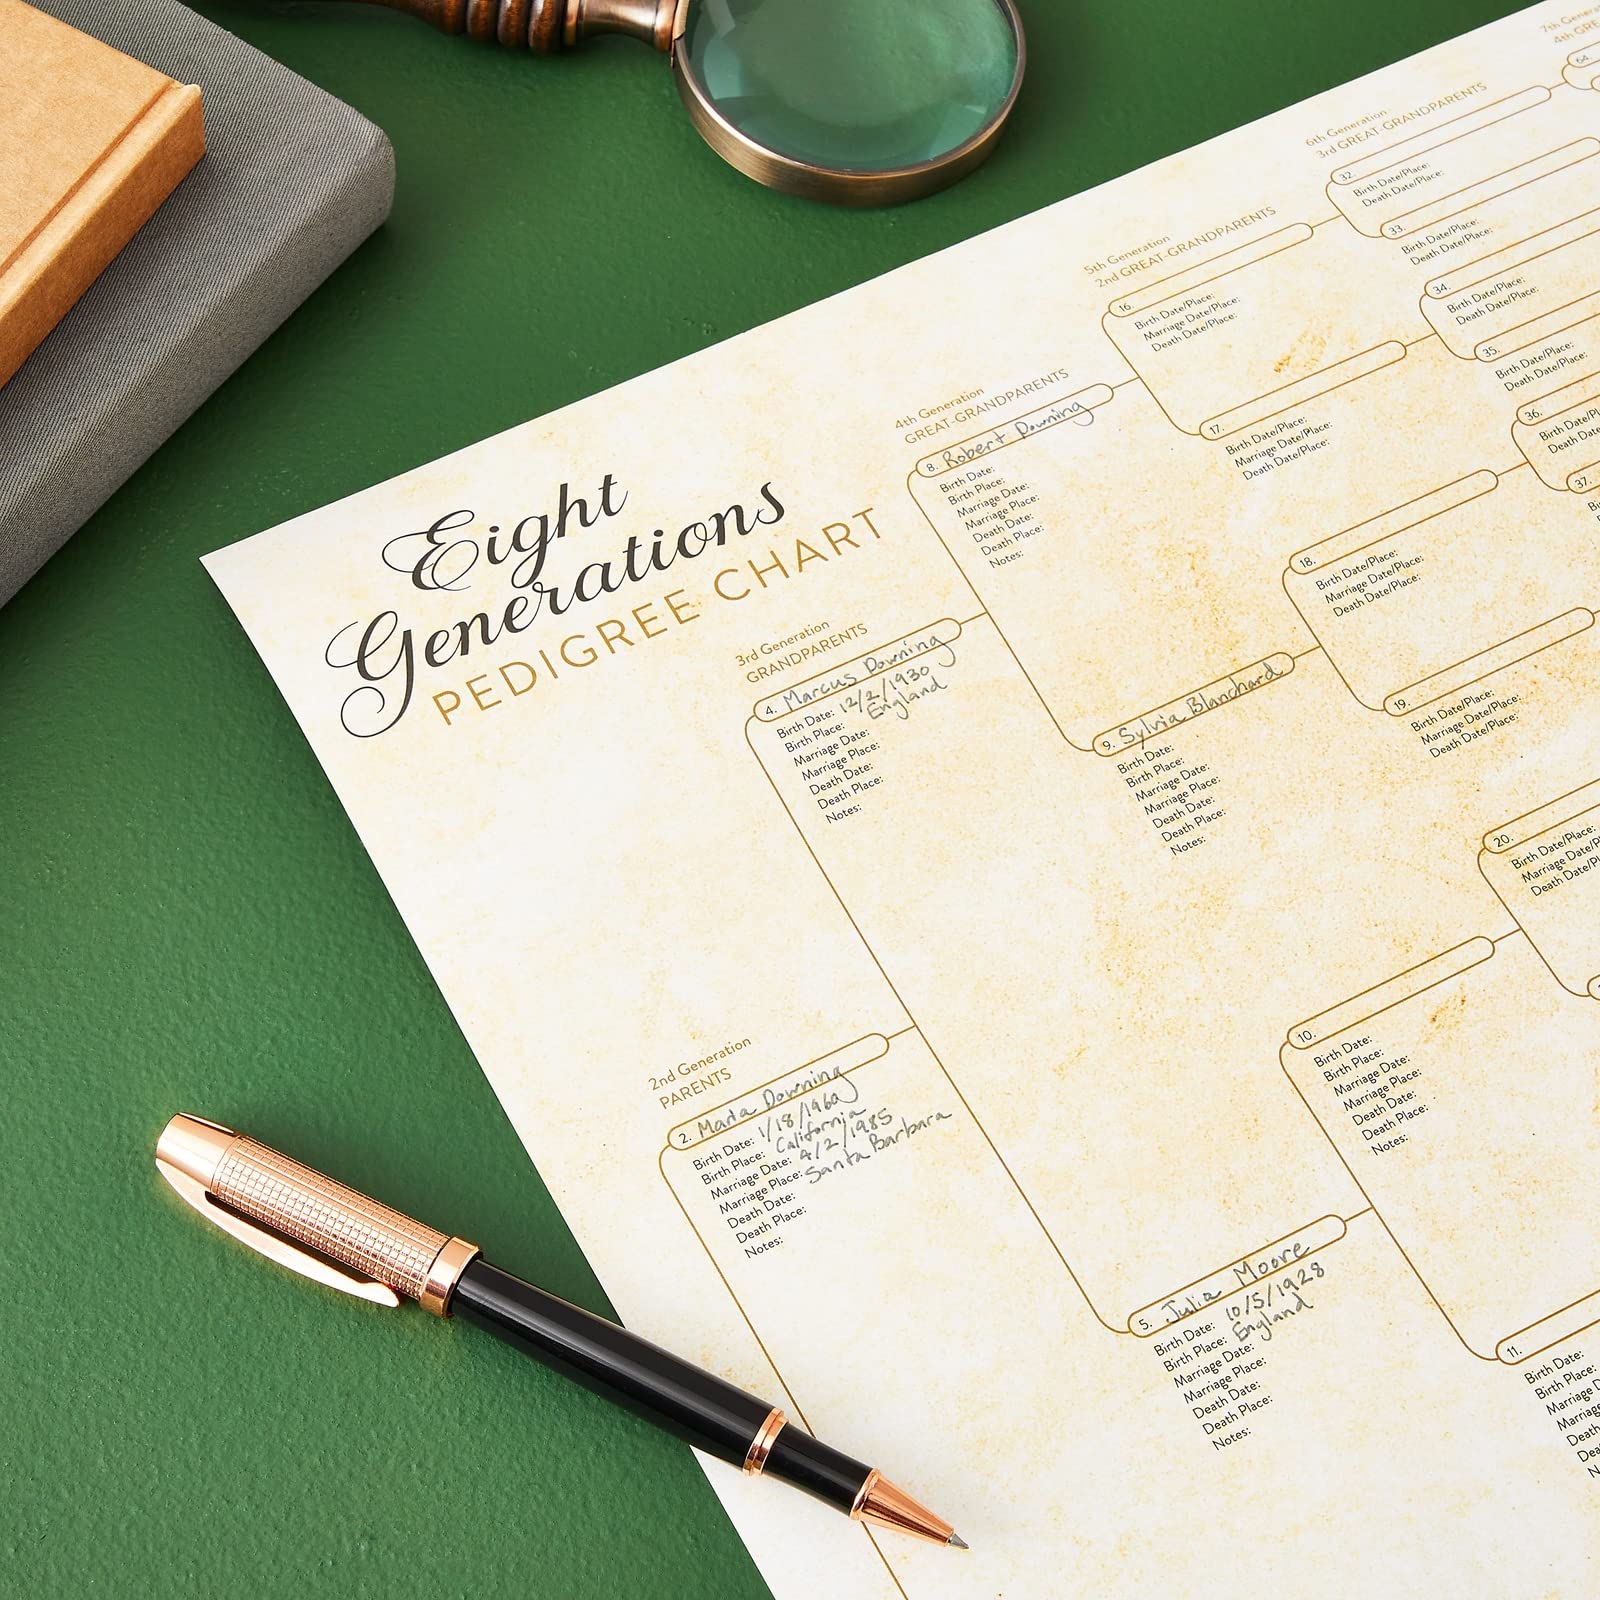 Eight
Generations
PEDIGREE CHART
2nd Generation
PARENTS
2. Maria Downing
Birth Date: 1/18/1960
Birth Place: California
Marriage Date: 4/2/1985
Marriage Place: Santa Barbara
Death Date:
Death Place:
Notes:
3rd Generation
GRANDPARENTS
4. Marcus Downing
Birth Date: 12/2/1930
Birth Place: England
Marriage Date:
Marriage Place:
Death Date:
Death Place:
Notes:
5. Julia Moore
Birth Date: 10/5/1928
Birth Place: England
Marriage Date:
Marriage Place:
Death Date:
Death Place:
Notes:
4th Generation
GREAT-GRANDPARENTS
8. Robert Downing
Birth Date:
Birth Place:
Marriage Date:
Marriage Place:
Death Date:
Death Place:
Notes:
9. Sylvia Blanchard
Birth Date:
Birth Place:
Marriage Date:
Marriage Place:
Death Date:
Death Place:
Notes:
10.
Birth Date:
Birth Place:
Marriage Date:
Marriage Place:
Death Date:
Death Place:
Notes:
11.
Birth Date:
Birth Place:
Marriage
Marriage
Death
5th Generation
2nd GREAT-GRANDPARENTS
16.
Birth Date/Place:
Marriage Date/Place:
Death Date/Place:
17.
Birth Date/Place:
Marriage Date/Place:
Death Date/Place:
18.
Birth Date/Place:
Marriage Date/Place:
Death Date/Place:
19.
Birth Date/Place:
Marriage Date/Place:
Death Date/Place:
20.
Birth Date/Place:
Marriage Date/P
Death Date/Pl
6th Generation
3rd GREAT-GRANDPARENTS
32.
Birth Date/Place:
Death Date/Place:
33.
Birth Date/Place:
Death Date/Place:
34.
Birth Date/Place:
Death Date/Place:
35.
Birth Date/Place:
Death Date/Place:
36.
Birth Date/
Death Date
37.
7th Genera
4th GRE
64.